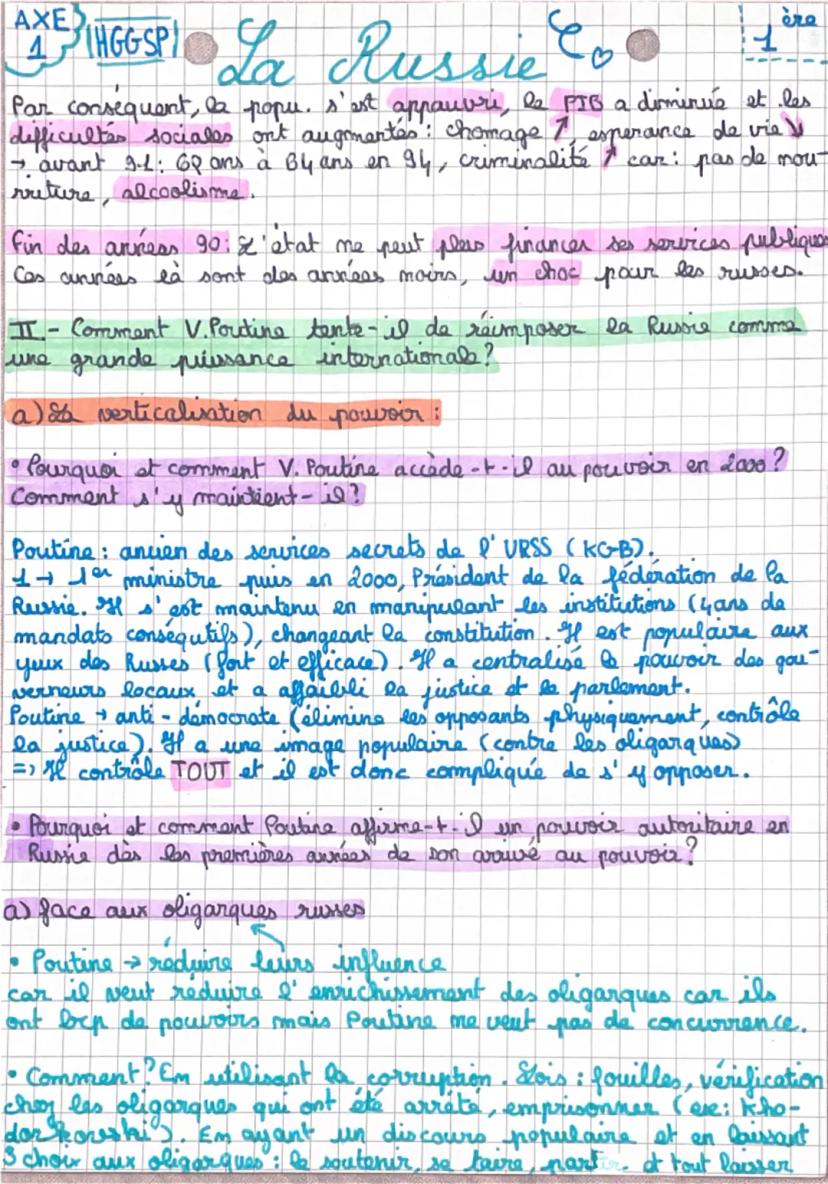 AXE 1
HGGSP
La Russie
1ère
Par conséquent, la popu. s'est appauvri, le PIB a diminué et les
difficultés sociales ont augmentés : chomage ↗, esperance de vie ↘
→ avant 91 : 69 ans à 64 ans en 94, criminalité ↗ car : pas de nou-
rriture, alcoolisme.
Fin des années 90 : L'état ne peut plus financer ses services publiques
Ces années là sont des années noirs, un choc pour les russes.
II - Comment V.Poutine tente-il de réimposer la Russie comme
une grande puissance internationale ?
a) La verticalisation du pouvoir :
• Pourquoi et comment V. Poutine accède-t-il au pouvoir en 2000 ?
Comment s'y maintient-il ?
Poutine : ancien des services secrets de l'URSS (KGB).
1 → 1er ministre puis en 2000, Président de la fédération de la
Russie. Il s'est maintenu en manipulant les institutions (4 ans de
mandats conséqutifs), changeant la constitution. Il est populaire aux
yeux des Russes (fort et efficace). Il a centralisé le pouvoir des gou-
verneurs locaux et a affaibli la justice et le parlement.
Poutine → anti-démocrate (élimine les opposants physiquement, contrôle
la justice). Il a une image populaire (contre les oligarques)
=> Il contrôle TOUT et il est donc compliquée de s'y opposer.
• Pourquoi et comment Poutine affirme-t-il un pouvoir autoritaire en
Russie dès les premières années de son arrivé au pouvoir ?
a) face aux oligarques russes
• Poutine → réduire leurs influence
car il veut réduire l'enrichissement des oligarques car ils
ont bcp de pouvoirs mais Poutine ne veut pas de concurrence.
• Comment ? En utilisant la corruption. Lois : fouilles, vérification
chez les oligarques qui ont été arrêté, emprisonner (ex : Kho-
dorkovski). En ayant un discours populaire et en laissant
3 choix aux oligarques : le soutenir, se taire, partir et tout laisser